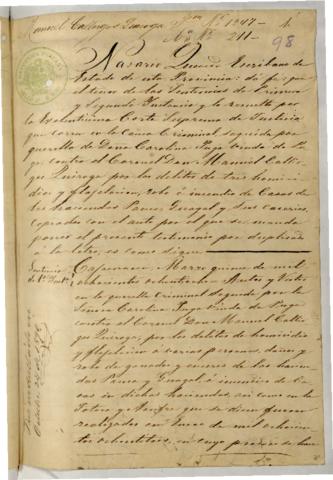 Manuel Callirgos Quiroga
1947 - 1
Nº 211 -
98
Navarro Escribano de
Estado de esta Provincia: doy fé que
el tenor de las Sentencias de Primera
y Segunda Instancia y lo resuelto por
la Excelentisima Corte Suprema de Justicia
que corre en la Causa Criminal seguida por
querella de Doña Carolina Puga viuda de Pu-
ga contra el Coronel Don Manuel Callir-
gos Quiroga por los delitos de tres homici-
dios y flajelacion, robo é incendio de Casas de
las haciendas Pauca y sus caserios
copiados con el auto por el que se manda
poner el presente testimonio por duplicado
á la letra, es como sigue
Sentencia
de 1ª Inst.
Cajamarca Marzo quince de mil
ochocientos ochentiocho. Autos y Vistos
en la querella Criminal seguida por la
Señora Carolina Puga viuda de Puga
contra el Coronel Don Manuel Callir-
gos Quiroga, por los delitos de homicidio
y flajelacion á varias personas, daños y
robo de ganado y enseres de las hacien-
das Pauca y é incendio de Ca-
sas en dichas haciendas, asi como en la
y que se dicen fueron
realizados en Enero de mil ochocien-
tos ochentitres, en cuyo proceso se han